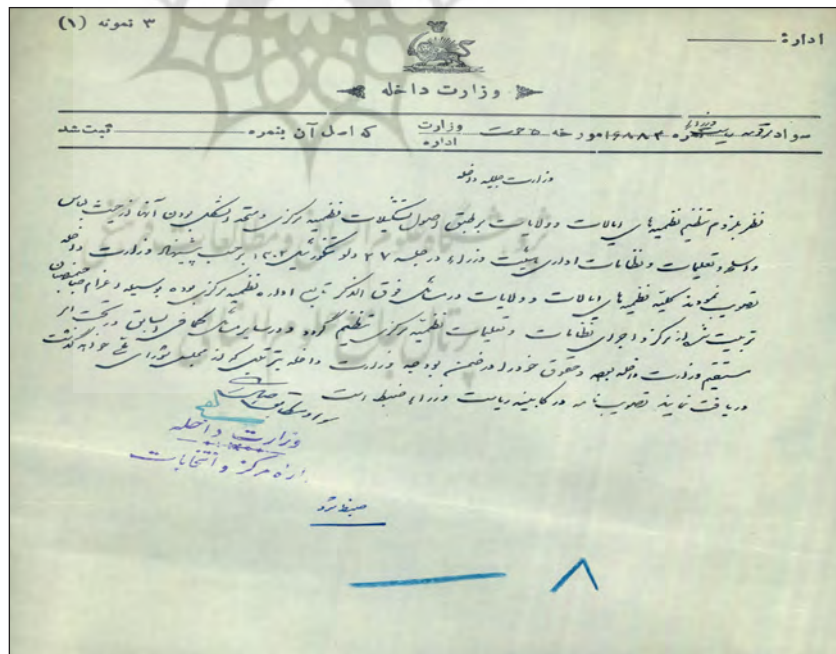 اداره
نمونه (۱) ۳
وزارت داخله
سواد مراسله ریاست وزراء نمره ۱۶۸۸۳ مورخه ۵ حوت وزارت اداره که اصل آن بنمره ثبت شده
وزارت جلیله داخله
نظر بلزوم تنظیم نظمیه‌های ایالات و ولایات بر طبق اصول تشکیلات نظمیه مرکزی و متحد الشکل بودن آنها از حیث لباس
و اسلحه و تعلیمات و نظامات اداری هیئت وزراء در جلسه ۲۷ دلو تنگوزئیل ۱۳۰۲ بر حسب پیشنهاد وزارت داخله
تصویب نمودند کلیه نظمیه‌های ایالات و ولایات در مسائل فوق الذکر تابع اداره نظمیه مرکزی بوده بوسیله اعزام صاحبمنصبان
تربیت شده از مرکز و اجرای نظامات و تعلیمات نظمیه مرکزی تنظیم گردد و در سایر مسائل کمافی السابق در تحت امر
مستقیم وزارت داخله بوده و حقوق خود را در ضمن بودجه وزارت داخله بترتیبی که از مجلس شورای ملی خواهد گذشت
دریافت نمایند تصویب نامه در کابینه ریاست وزراء ضبط است
سواد مطابق اصل است
وزارت داخله
اداره مرکز و انتخابات
ضبط شود
۸